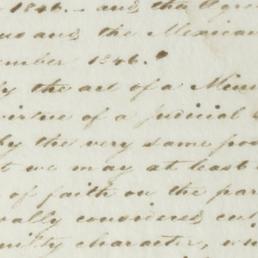 1846. - and the Agree
us and the Mexican
ember 1846.
by the act of a Minis
virtue of a judicial
by the very same pow
t we may at least
of faith on the par
rally considered cul
uilty character, un